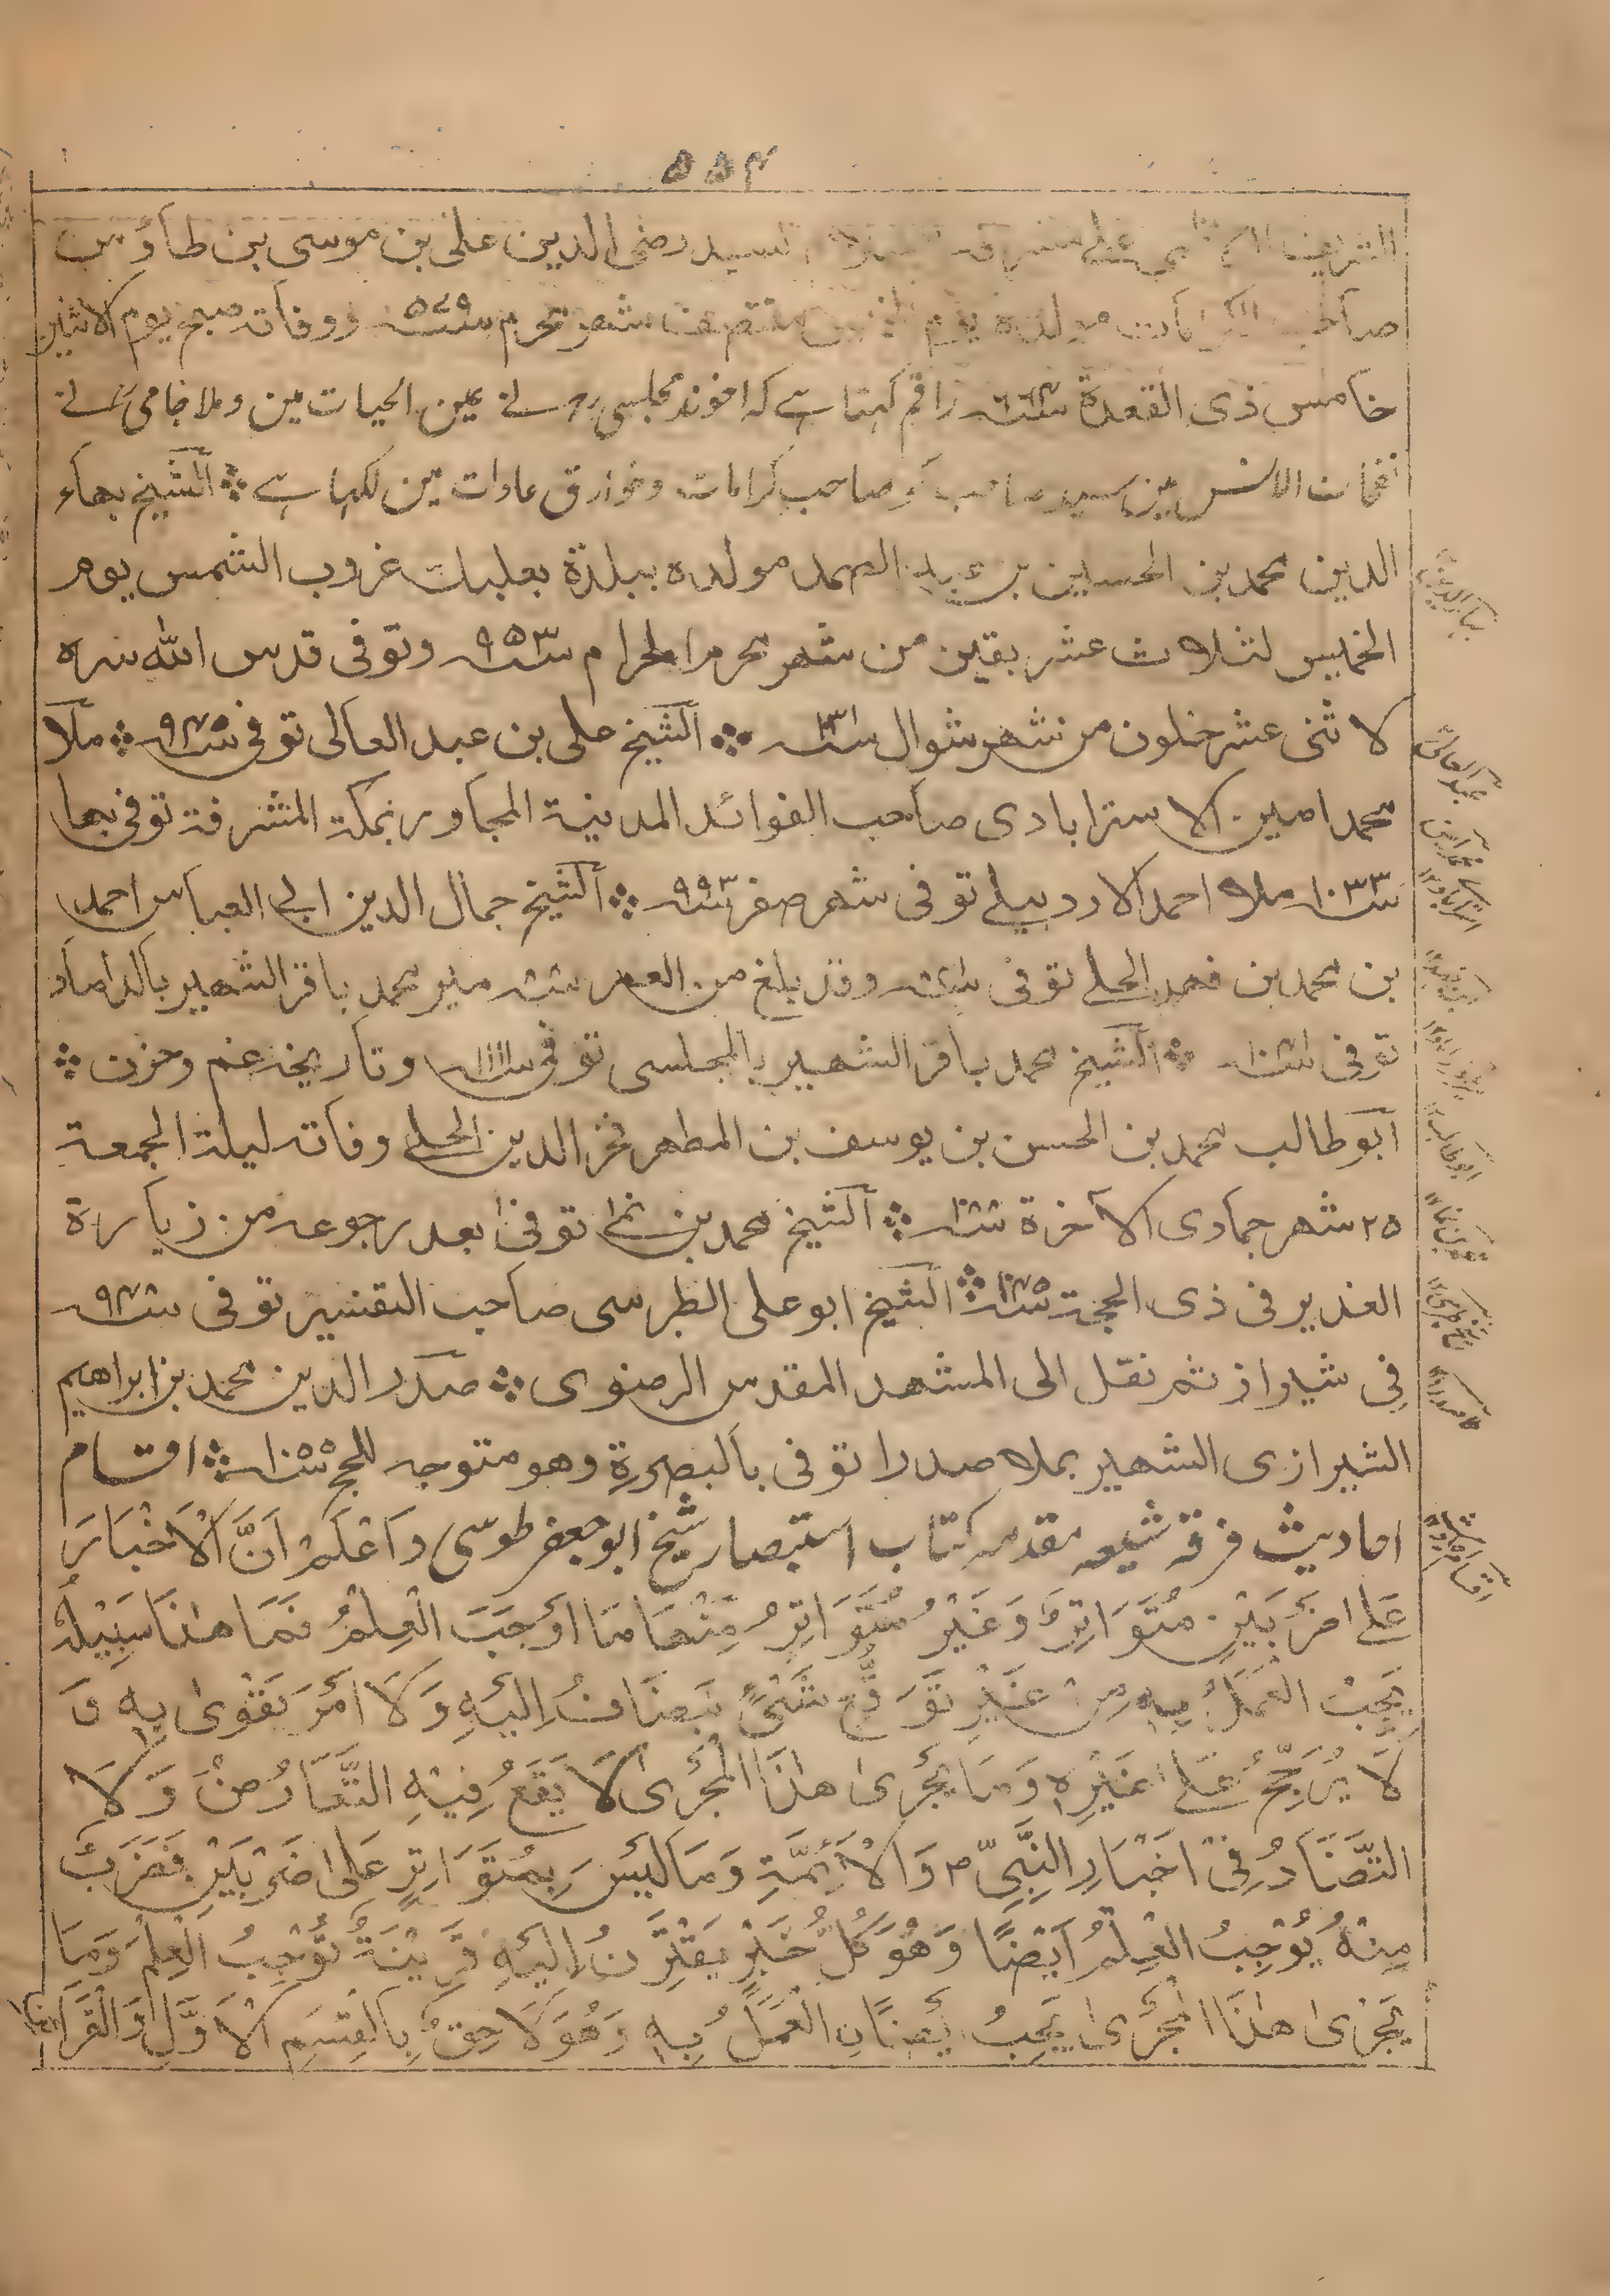 ۵۵۴
السيد رضى الدين على بن موسى بن طاؤس
صاحب الكرامات مولده يوم منتصف شهر محرم ووفاته صبح يوم الاثنين
خامس ذى القعدة راقم کہتا ہے کہ اخوند مجلسی رہ نے عین الحیات مین وملا جامی نے
نفحات الانس مین سید صاحب کو صاحب کرامات وخوارق عادات مین لکہا ہے ؞ الشيخ بهاء
الدين محمد بن الحسين بن عبد الصمد مولده ببلدة بعلبك غروب الشمس يوم
الخميس لثلاث عشر بقين من شهر محرم الحرام سنه ۹۵۳ وتوفى قدس الله سره
لاثنى عشر خلون من شهر شوال ؞ الشيخ على بن عبد العالى توفى ؞ ملا
محمد امين الاسترابادى صاحب الفوائد المدنية المجاور بمكة المشرفة توفى بها
سنه ۱۰۳۳ ملا احمد الاردبيلى توفى شهر صفر سنه ۹۹۳ ؞ الشيخ جمال الدين ابى العباس احمد
بن محمد بن فهد الحلى توفى وقد بلغ من العمر مير محمد باقر الشهير بالداماد
توفى ؞ الشيخ محمد باقر الشهير بالمجلسى توفى سنه ۱۱۱۱ وتاريخه غم وحزن ؞
ابو طالب محمد بن الحسن بن يوسف بن المطهر فخر الدين الحلى وفاته ليلة الجمعة
۲۵ شهر جمادى الآخرة ؞ الشيخ محمد بن نما توفى بعد رجوعه من زيارة
الغدير فى ذى الحجة ؞ الشيخ ابو على الطبرسى صاحب التفسير توفى
فى شيراز ثم نقل الى المشهد المقدس الرضوى ؞ صدر الدين محمد بن ابراهيم
الشيرازى الشهير بملا صدرا توفى بالبصرة وهو متوجه للحج ؞ اقسام
احادیث فرقہ شیعہ مقدمہ کتاب استبصار شیخ ابو جعفر طوسی وَاعْلَمْ اَنَّ الْاَخْبَارَ
عَلى ضَرْبَيْنِ مُتَوَاتِرٌ وَغَيْرُ مُتَوَاتِرٍ مِنْهَا مَا اَوْجَبَ الْعِلْمَ فَمَا هٰذَا سَبِيْلُهُ
يَجِبُ الْعَمَلُ بِهٖ مِنْ غَيْرِ تَوَقُّعِ شَىْءٍ يُضَافُ اِلَيْهِ وَلَا اَمْرَ يَقْوٰى بِهٖ وَ
لَا يُرَجَّحُ عَلىٰ غَيْرِهٖ وَمَا يَجْرِىْ هٰذَا الْمَجْرٰى لَا يَقَعُ فِيْهِ التَّعَارُضُ وَلَا
التَّضَادُ فِىْ اَخْبَارِ النَّبِىِّ ۴ وَالْاَئِمَّةِ وَمَا لَيْسَ بِمُتَوَاتِرٍ عَلى ضَرْبَيْنِ فَضَرْبٌ
مِنْهُ يُوْجِبُ الْعِلْمَ اَيْضًا وَهُوَ كُلُّ خَبَرٍ يَقْتَرِنُ اِلَيْهِ قَرِيْنَةٌ تُوْجِبُ الْعِلْمَ وَمَا
يَجْرِىْ هٰذَا الْمَجْرٰى يَجِبُ اَيْضًا الْعَمَلُ بِهٖ وَهُوَ لَاحِقٌ بِالْقِسْمِ الْاَوَّلِ وَالْقَرَائِنُ
بہاء الدین
عبد العالی